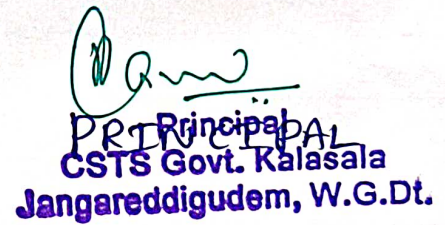 PRINCIPAL
Principal
CSTS Govt. Kalasala
Jangareddigudem, W.G.Dt.